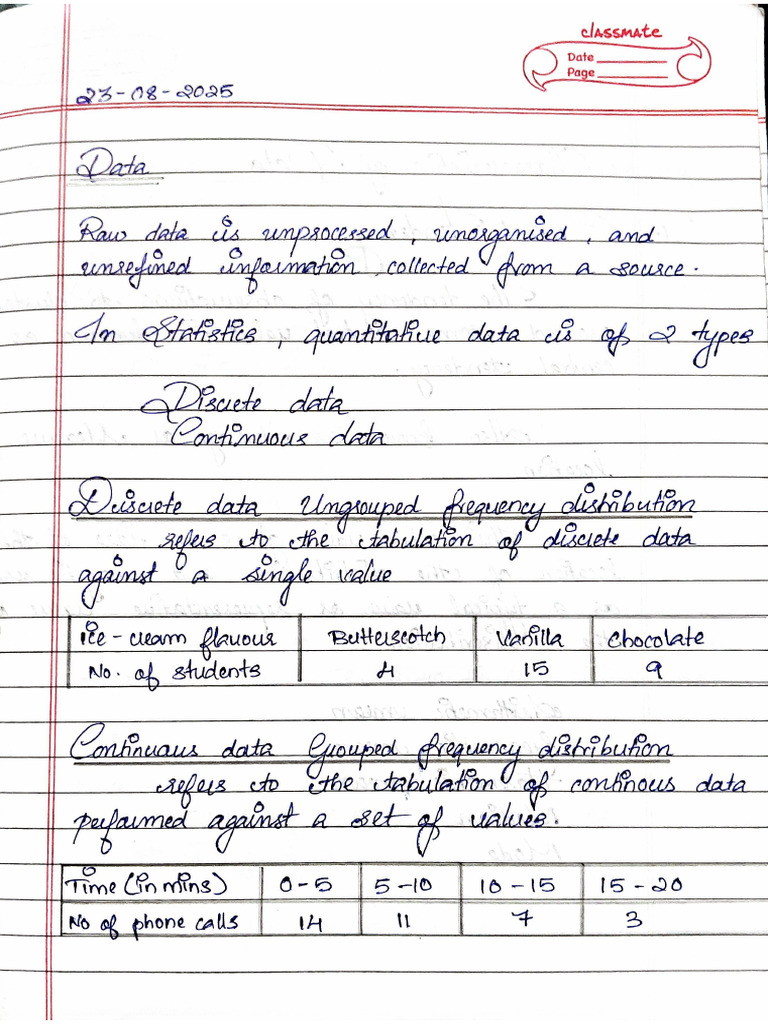 classmate
Date
Page
23-08-2025
Data
Raw data is unprocessed, unorganised, and
unrefined information collected from a source.
In Statistics, quantitative data is of 2 types
Discrete data
Continuous data
Discrete data Ungrouped frequency distribution
refers to the tabulation of discrete data
against a single value
ice-cream flavour Butterscotch Vanilla Chocolate
No. of students 4 15 9
Continuous data Grouped frequency distribution
refers to the tabulation of continous data
performed against a set of values.
Time (in mins) 0-5 5-10 10-15 15-20
No of phone calls 14 11 7 3